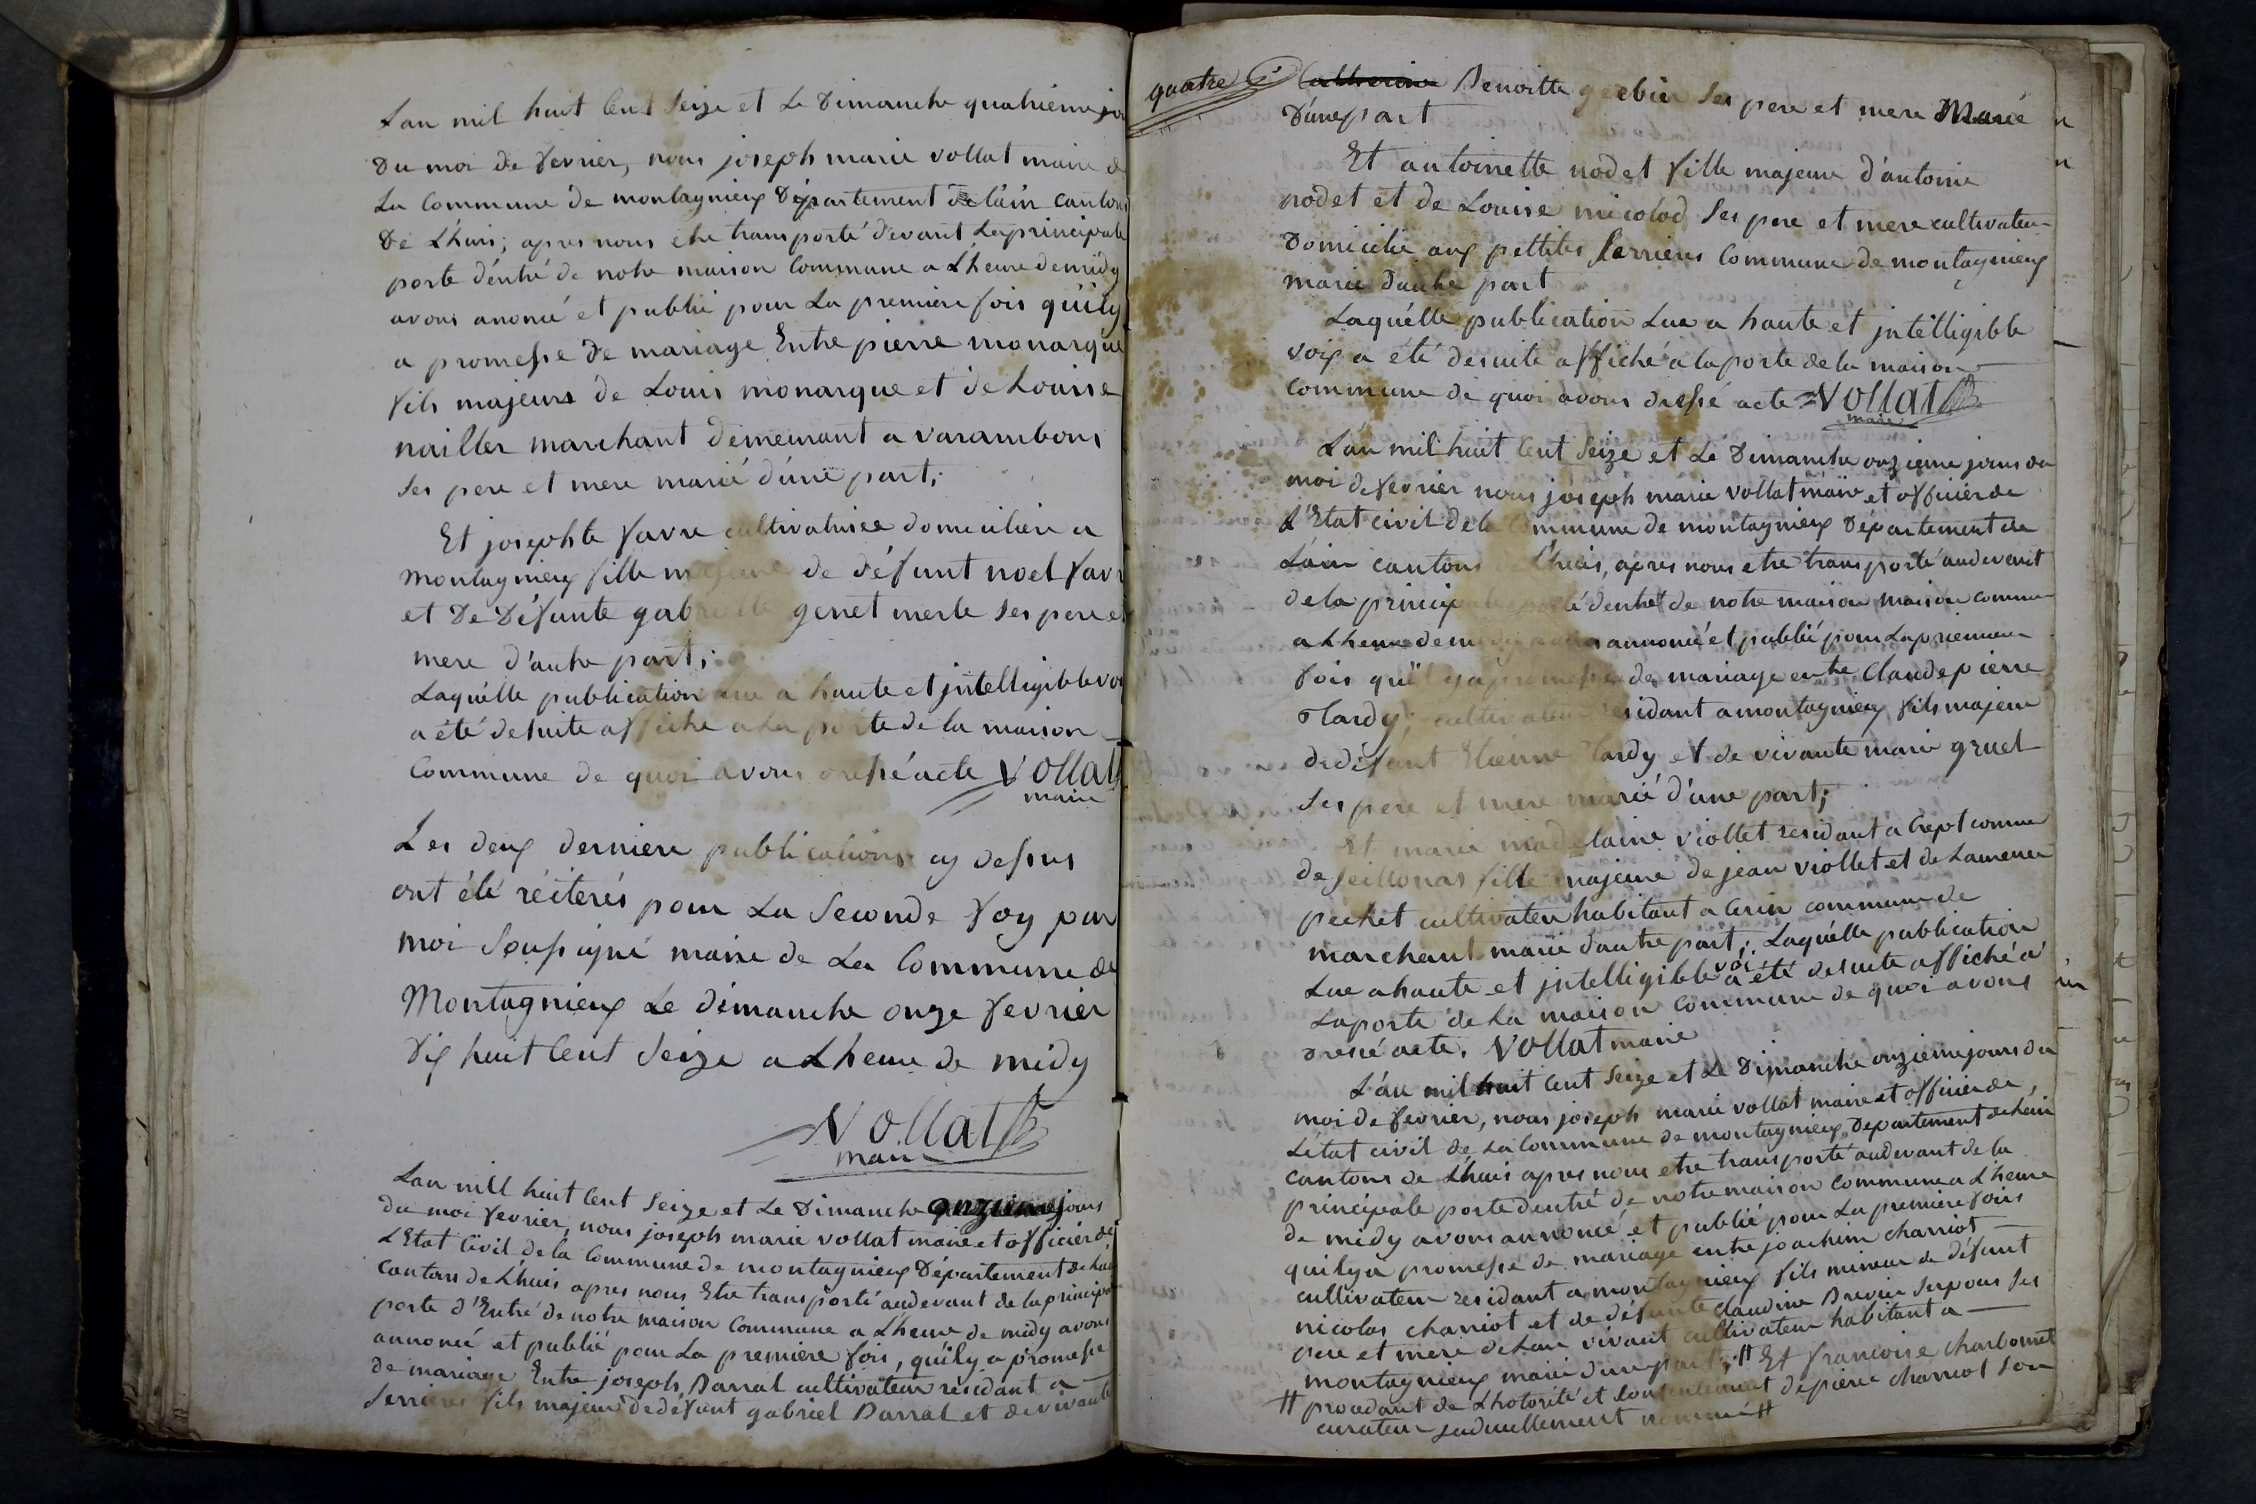 Lan mil huit Cent Seize et Le Dimanche quatrieme jou
Du moi de fevrier, nous joseph marie vollat maire de
La Commune de montagnieux Département de lain cantons
De Lhuis; apres nous etre transporté devant La principale
porte déntré de notre maison Commune a Lheure de midy
avons anoncé et publié pour La premiere fois quïly
a promesse de mariage Entre pierre monarque
fils majeure de Louis monarque et de Louise
nailler marchant demeurant a varambons
ses pere et mere marié d'une part;
Et josephte favre cultivatrice domiciliée a
montagnieux fille majeure de défunt noel favr
et De Défunte gabrielle genet merle ses pere et
mere d'autre part;
Laquélle publication lue a haute et jntelligible voi
a été desuite affiché a La porte de la maison
Commune de quoi avons dressé acte Vollat
maire
Les deux derniere publications cy dessus
ont été réiterés pour La Seconde foy par
moi Soussigné maire de La Commune de
Montagnieux Le dimanche onze fevrier
Dix huit Cent Seize a Lheure de midy
Vollat
maire
Lan mill huit Cent Seize et Le Dimanche onzieme jours
du moi fevrier, nous joseph marie vollat maire et officier de
LEtat Civil de la Commune de montagnieux Département de Lain
Cantons de Lhuis apres nous Etre transporté audevant de la principal
porte d'Entré de notre maison Commune a Lheure de midy avons
annoncé et publié pour La premiere fois, quïly a promesse
de mariage Entre joseph Barral cultivateur residant a
Serrieres fils majeur de défunt gabriel Barral et de vivante
quatre Catherine Benoitte gerbier Ses pere et mere Marié
D'une part
Et antoinette nodet fille majeure d'antoine
nodet et de Louise micolod Ses pere et mere cultivateur
Domicilié aux pettites Serrieres Commune de montagnieux
marié dautre part
Laquélle publication Lue a haute et jntelligible
voix a été desuite affiché a la porte de la maison
Commune de quoi avons dressé acte Vollat
maire
L'an mil huit Cent Seize et Le Dimanche onzieme jours du
moi de fevrier nous joseph marie vollat maire et officier de
L'Etat civil de la Commune de montagnieux Département de
Lain cantons de Lhuis, apres nous etre transporté audevant
de la principale porte dentré de notre maison maison commu
a Lheure de midy avons annoncé et publié pour La premiere
fois quïl y a promesse de mariage entre Claude pierre
Tardy, cultivateur residant a montagnieux fils majeur
de défunt Etienne Tardy et de vivante marie gruel
Ses pere et mere marié d'une part;
Et marie madelaine viollet residant a Crept commune
de Seillonas fille majeure de jean viollet et de Laurence
pechet cultivateur habitant a Cerin commune de
marchant marié dautre part; Laquélle publication
Lue a haute et jntelligible voi a été desuite affiché a
La porte de La maison Commune de quoi avons
dressé acte. Vollat maire
L'an mil huit Cent Seize et Le Dimanche onzieme jours du
moi de fevrier, nous joseph marie vollat maire et officier de
Létat civil de La Commune de montagnieux Département de Lain
Cantons de Lhuis apres nous etre transporté audevant de la
principale porte dentré de notre maison Commune a Lheure
de midy avons annoncé et publié pour La premiere fois
quïly a promesse de mariage entre joachim charriot
cultivateur residant a montagnieux fils mineur de défunt
nicolas charriot et de défunte Claudine Ses
pere et mere de Leur vivant cultivateur habitant a
montagnieux marié d'une part; # Et francoise charbonnet
# procédant de Lhotorité et Consentement de pierre charriot son
curateur nommé #